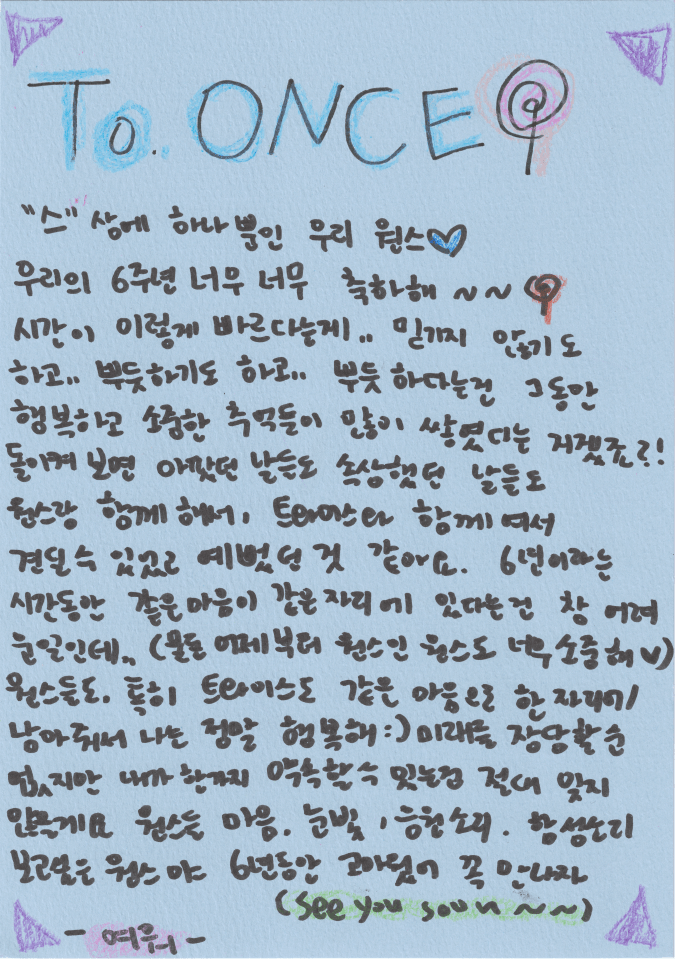 To. ONCE
"스" 상에 하나 뿐인 우리 원스
우리의 6주년 너무 너무 축하해 ~~
시간이 이렇게 빠르다는게.. 믿기지 않기도
하고.. 뿌듯하기도 하고.. 뿌듯하다는건 그동안
행복하고 소중한 추억들이 많이 쌓였다는 거겠죠?!
돌이켜 보면 아팠던 날들도 속상했던 날들도
원스랑 함께해서, 트와이스와 함께여서
견딜 수 있었고 예뻤던 것 같아요. 6년이라는
시간동안 같은 마음이 같은 자리에 있다는건 참 어려
운일인데.. (물론 어제부터 원스인 원스도 너무 소중해 ♡)
원스들도. 특히 트와이스도 같은 마음으로 한 자리에
남아줘서 나는 정말 행복해:) 미래를 장담할순
없지만 내가 한가지 약속할수 있는건 절대 잊지
않을게요 원스들 마음. 눈빛, 응원소리. 함성소리
보고싶은 원스야 6년동안 고마웠어 꼭 만나자
(see you soon ~~)